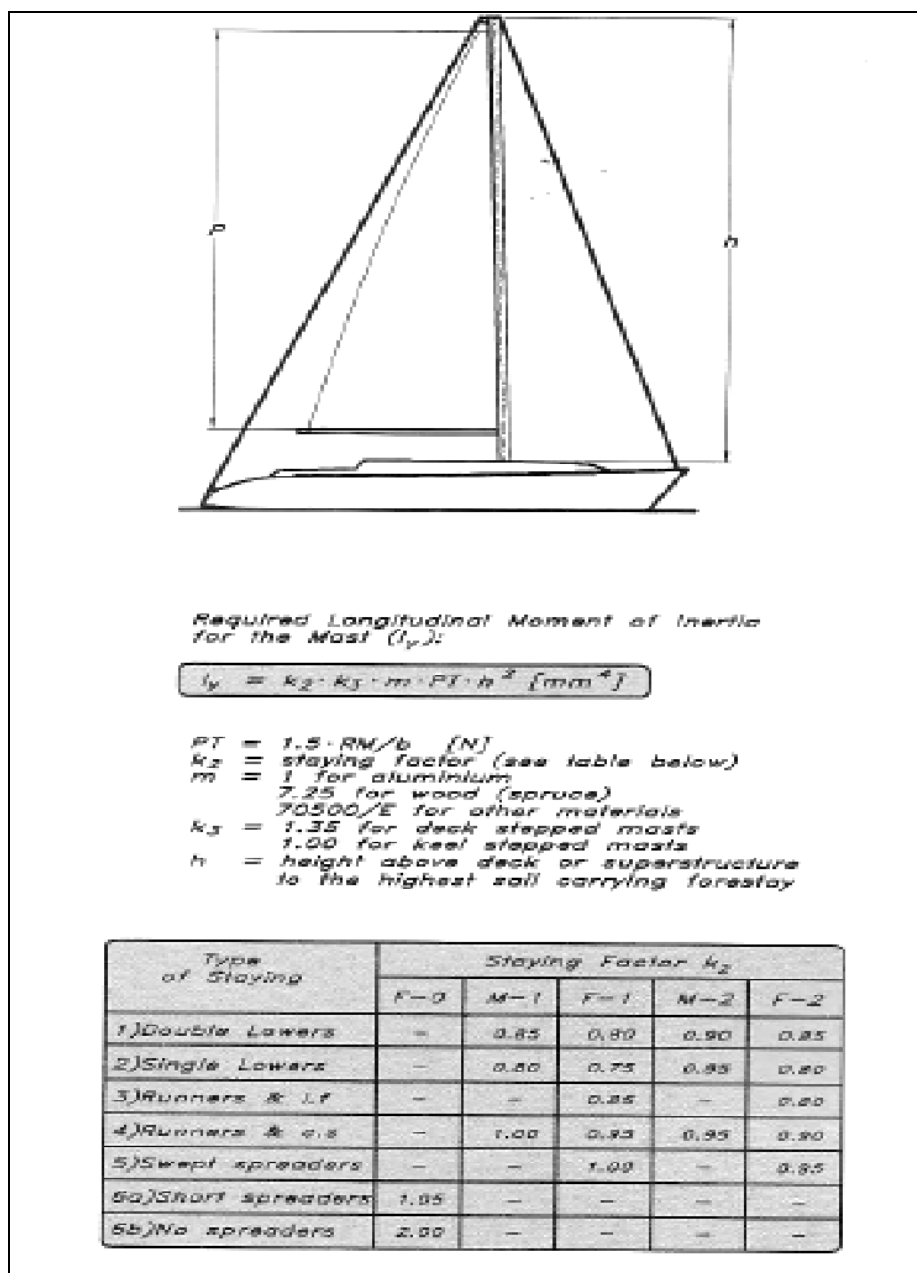 P
h
Required Longitudinal Moment of Inertia
for the Mast (Iy):
Iy = k2 · k3 · m · PT · h² [mm⁴]
PT = 1.5 · RM/b [N]
k2 = staying factor (see table below)
m = 1 for aluminium
7.25 for wood (spruce)
70500/E for other materials
k3 = 1.35 for deck stepped masts
1.00 for keel stepped masts
h = height above deck or superstructure
to the highest sail carrying forestay
Type of Staying Staying Factor k2
F-0 M-1 F-1 M-2 F-2
1)Double Lowers – 0.85 0.80 0.90 0.85
2)Single Lowers – 0.80 0.75 0.80
3)Runners & – – 0.85 – 0.80
4)Runners & – 1.00 0.95 0.90
5)Swept spreaders – – 1.00 –
6a)Short spreaders 1.05 – – – –
6b)No spreaders 2.00 – – – –